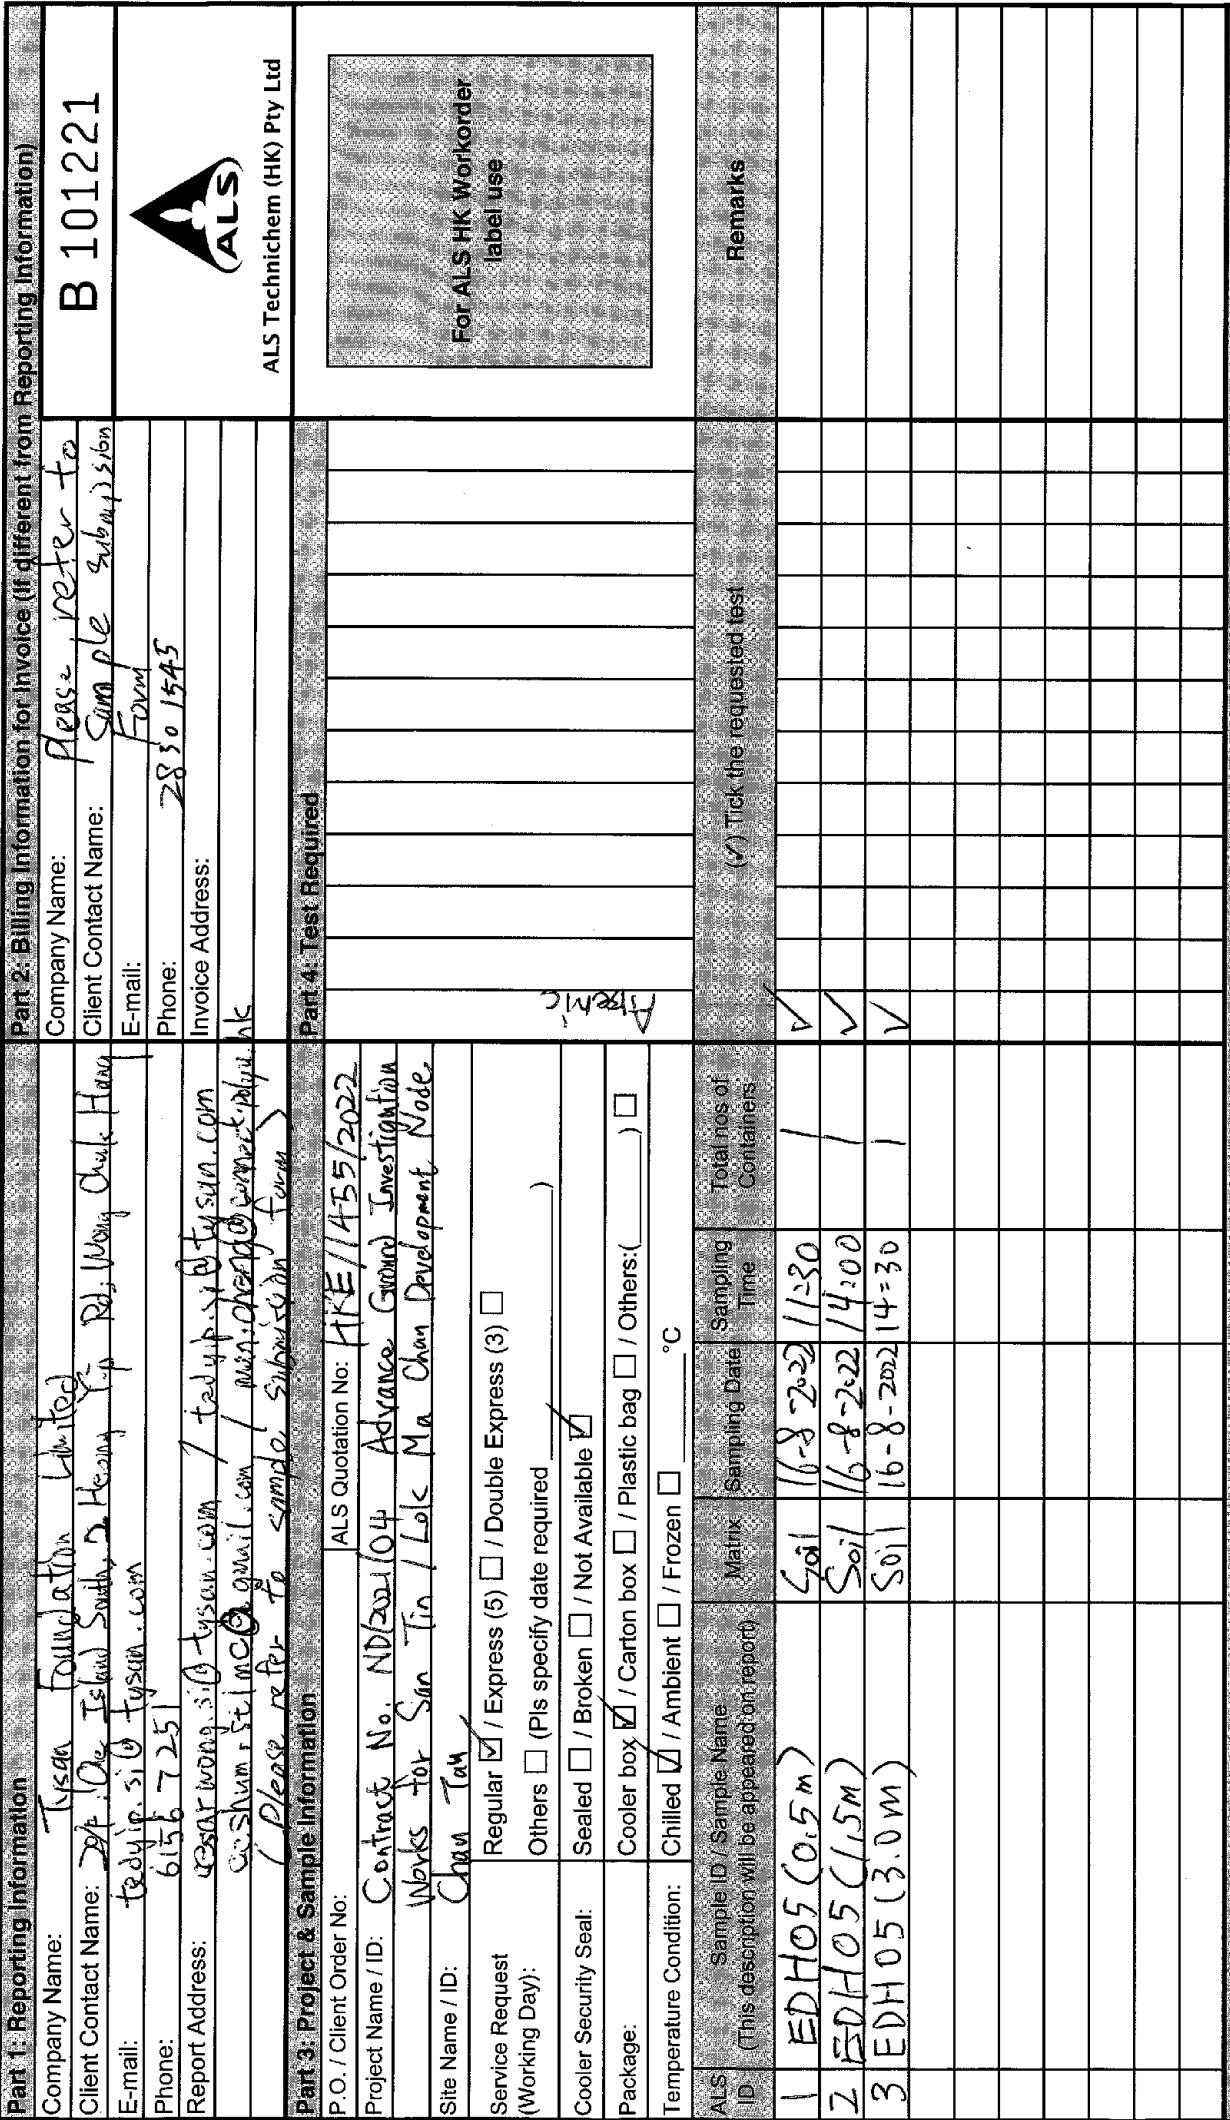 Part 1: Reporting Information
Company Name: Tysan Foundation Limited
Client Contact Name: 20/F, One Island South, 2 Heung Yip Rd, Wong Chuk Hang
E-mail: tedyip.si@tysan.com
Phone: 6156 7251
Report Address: cesarwong.si@tysan.com / tedyip.si@tysan.com
@gmail.com / @connect.polyu.hk
(Please refer to sample submission form)
Part 2: Billing Information for Invoice (If different from Reporting Information)
Company Name: Please refer to
Client Contact Name: Sample Submission
E-mail: Form
Phone: 2830 1545
Invoice Address:
B 101221
ALS
ALS Technichem (HK) Pty Ltd
Part 3: Project & Sample Information
P.O. / Client Order No:
ALS Quotation No: HKE/1455/2022
Project Name / ID: Contract No. ND/2021/04 Advance Ground Investigation
Works for San Tin / Lok Ma Chau Development Node
Site Name / ID: Chan Tam
Service Request (Working Day): Regular ☑ / Express (5) ☐ / Double Express (3) ☐
Others ☐ (Pls specify date required ________)
Cooler Security Seal: Sealed ☐ / Broken ☐ / Not Available ☑
Package: Cooler box ☑ / Carton box ☐ / Plastic bag ☐ / Others:(________) ☐
Temperature Condition: Chilled ☑ / Ambient ☐ / Frozen ☐ ________°C
Part 4: Test Required
Arsenic
For ALS HK Workorder
label use
ALS ID
Sample ID / Sample Name
(This description will be appeared on report)
Matrix
Sampling Date
Sampling Time
Total nos of Containers
(✓) Tick the requested test
Remarks
1 EDH05 (0.5m) Soil 16-8-2022 11:30 1 ✓
2 EDH05 (1.5m) Soil 16-8-2022 14:00 1 ✓
3 EDH05 (3.0m) Soil 16-8-2022 14:30 1 ✓